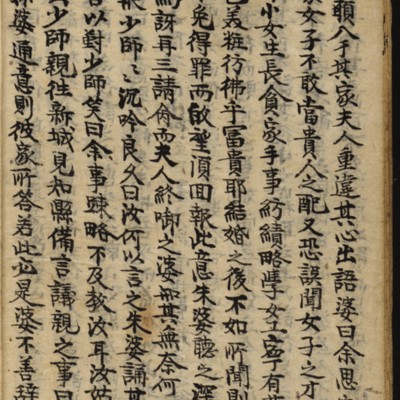 頭八于其家夫人重違其心出語婆曰余思
家女子不敢當貴人之配又恐誤聞女子之才
小女生長貧家手事紡績略學女工寧有
色美粧彷彿乎冨貴耶結婚之後不如所聞則
免得罪而啟望湏回報此意朱婆聽之深
為訝再三請俞而夫人終啣之婆無奈何
飛少師〻沉吟良久曰汝何以言之朱婆
言以對少師笑曰余事踈略不及教汝耳汝姑
少師親往新城見知縣備言議親之事曰
婆通意則彼家所答若此必是婆不善辞